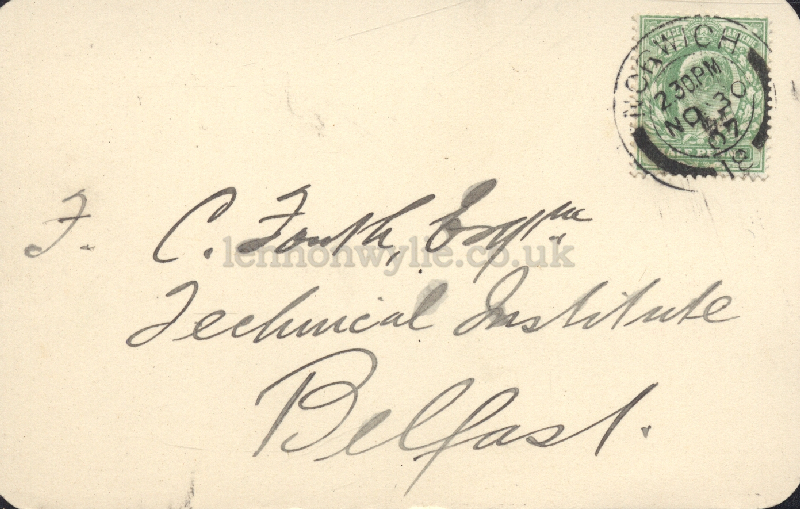 NORWICH
2 30 PM
NO 30
07
18
F. C. Forth, Esq^re
lennonwylie.co.uk
Technical Institute
Belfast.